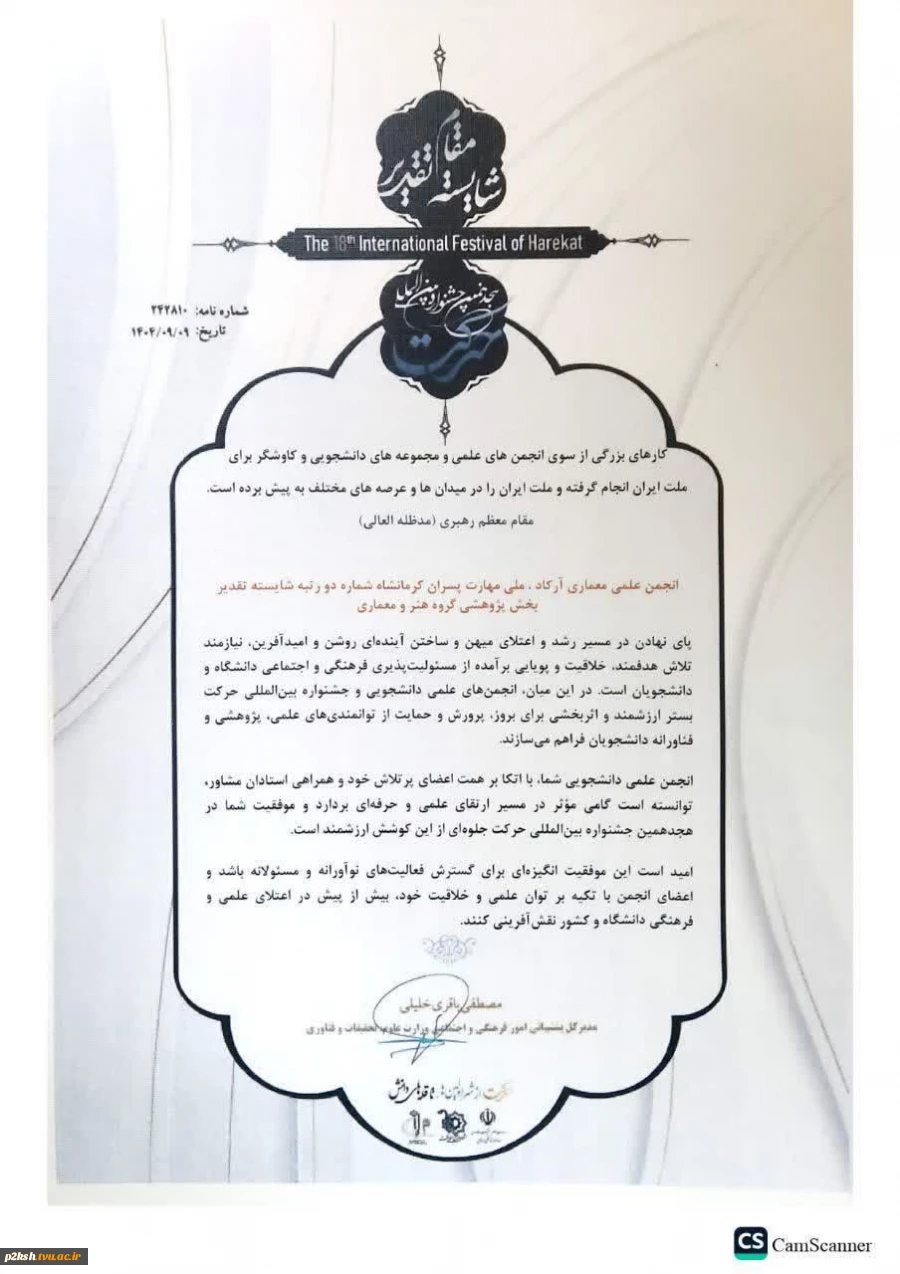 شایسته مقام تقدیر
The 18th International Festival of Harekat
هجدهمین جشنواره بین‌المللی
حرکت
شماره نامه: ۲۴۲۸۱۰
تاریخ: ۱۴۰۴/۰۹/۰۹
کارهای بزرگی از سوی انجمن های علمی و مجموعه های دانشجویی و کاوشگر برای
ملت ایران انجام گرفته و ملت ایران را در میدان ها و عرصه های مختلف به پیش برده است.
مقام معظم رهبری (مدظله العالی)
انجمن علمی معماری آرکاد ، ملی مهارت پسران کرمانشاه شماره دو رتبه شایسته تقدیر
بخش پژوهشی گروه هنر و معماری
پای نهادن در مسیر رشد و اعتلای میهن و ساختن آینده‌ای روشن و امیدآفرین، نیازمند
تلاش هدفمند، خلاقیت و پویایی برآمده از مسئولیت‌پذیری فرهنگی و اجتماعی دانشگاه و
دانشجویان است. در این میان، انجمن‌های علمی دانشجویی و جشنواره بین‌المللی حرکت
بستر ارزشمند و اثربخشی برای بروز، پرورش و حمایت از توانمندی‌های علمی، پژوهشی و
فناورانه دانشجویان فراهم می‌سازند.
انجمن علمی دانشجویی شما، با اتکا بر همت اعضای پرتلاش خود و همراهی استادان مشاور،
توانسته است گامی مؤثر در مسیر ارتقای علمی و حرفه‌ای بردارد و موفقیت شما در
هجدهمین جشنواره بین‌المللی حرکت جلوه‌ای از این کوشش ارزشمند است.
امید است این موفقیت انگیزه‌ای برای گسترش فعالیت‌های نوآورانه و مسئولانه باشد و
اعضای انجمن با تکیه بر توان علمی و خلاقیت خود، بیش از پیش در اعتلای علمی و
فرهنگی دانشگاه و کشور نقش‌آفرینی کنند.
مصطفی باقری خلیلی
مدیرکل پشتیبانی امور فرهنگی و اجتماعی وزارت علوم، تحقیقات و فناوری
CS CamScanner
p2ksh.tvu.ac.ir